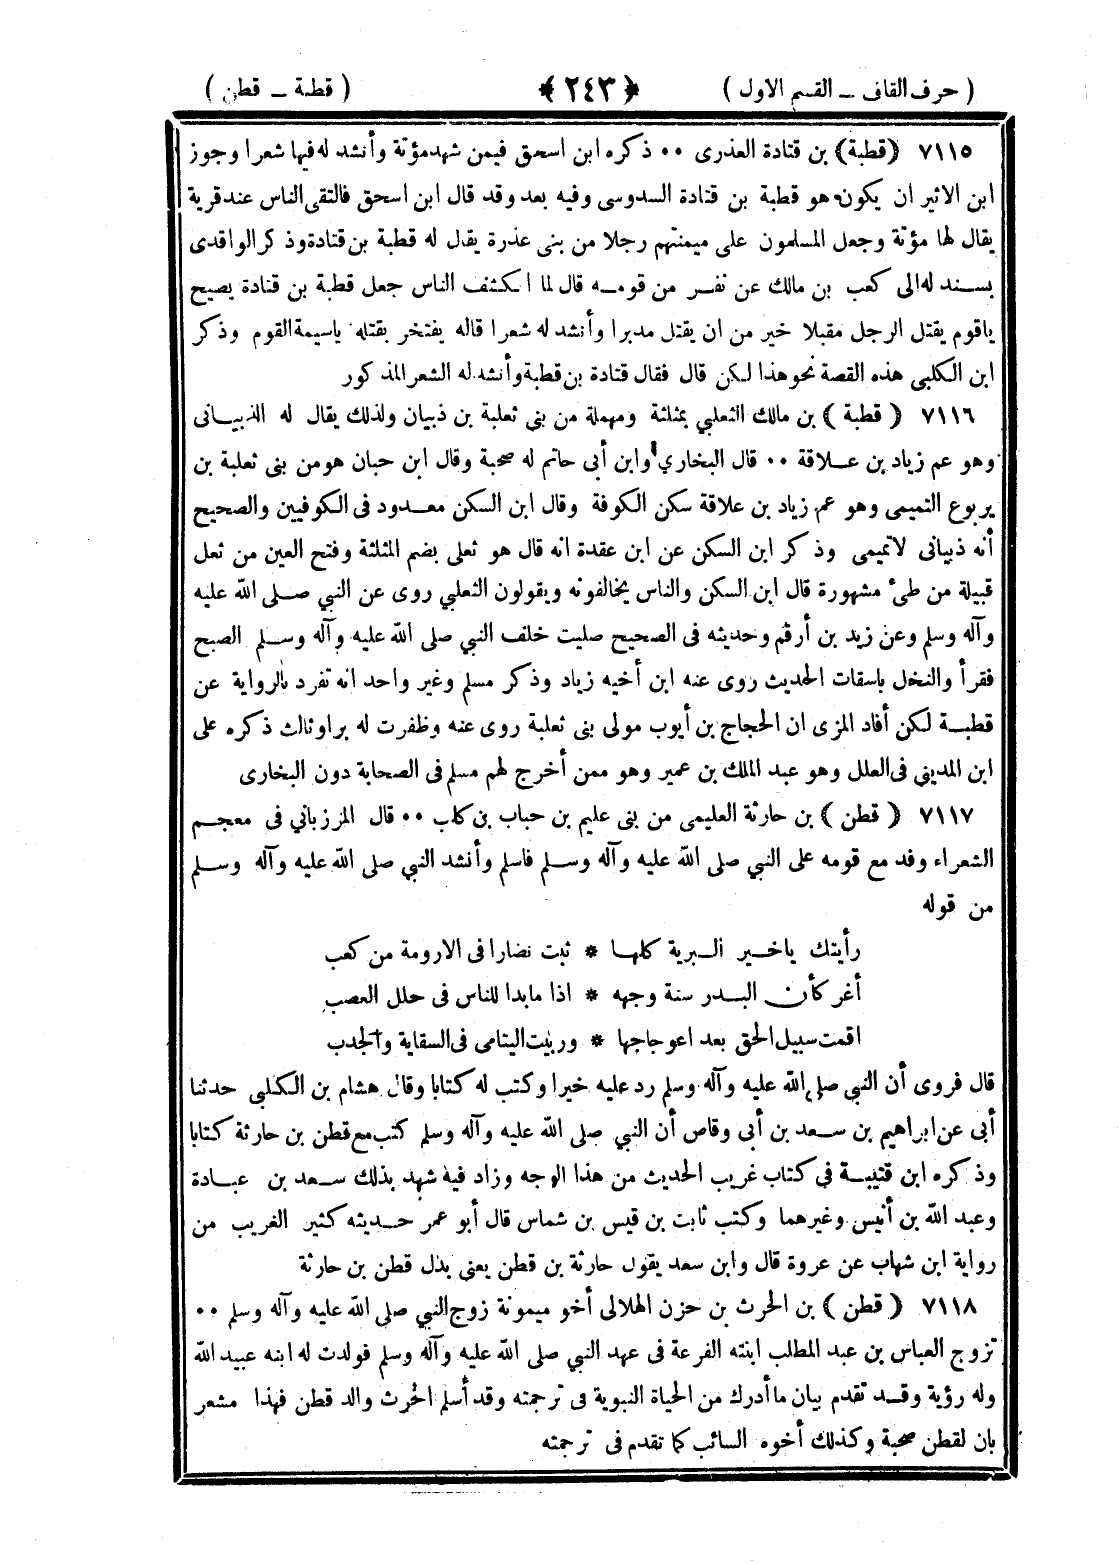 ( حرف القاف ــ القسم الاول ) ﴿ ٢٤٣ ﴾ ( قطبة ــ قطن )
٧١١٥ ( قطبة ) بن قتادة العذرى ٠٠ ذكره ابن اسحق فيمن شهد مؤتة وأنشد له فيها شعرا وجوز
ابن الاثير ان يكون هو قطبة بن قتادة السدوسى وفيه بعد وقد قال ابن اسحق فالتقى الناس عند قرية
يقال لها مؤتة وجعل المسلمون على ميمنتهم رجلا من بنى عذرة يقال له قطبة بن قتادة وذكر الواقدى
بسند له الى كعب بن مالك عن نفر من قومه قال لما انكشف الناس جعل قطبة بن قتادة يصيح
ياقوم يقتل الرجل مقبلا خير من ان يقتل مدبرا وأنشد له شعرا قاله يفتخر بقتله ياسيمة القوم وذكر
ابن الكلبى هذه القصة نحو هذا لكن قال فقال قتادة بن قطبة وأنشد له الشعر المذكور
٧١١٦ ( قطبة ) بن مالك الثعلبي بمثلثة ومهملة من بنى ثعلبة بن ذبيان ولذلك يقال له الذبيانى
وهو عم زياد بن علاقة ٠٠ قال البخاري وابن أبى حاتم له صحبة وقال ابن حبان هو من بنى ثعلبة بن
يربوع التميمى وهو عم زياد بن علاقة سكن الكوفة وقال ابن السكن معدود فى الكوفيين والصحيح
أنه ذبيانى لاتميمى وذكر ابن السكن عن ابن عقدة انه قال هو ثعلى بضم المثلثة وفتح العين من ثعل
قبيلة من طئ مشهورة قال ابن السكن والناس يخالفونه ويقولون الثعلبي روى عن النبي صلى الله عليه
وآله وسلم وعن زيد بن أرقم وحديثه فى الصحيح صليت خلف النبي صلى الله عليه وآله وسلم الصبح
فقرأ والنخل باسقات الحديث روى عنه ابن أخيه زياد وذكر مسلم وغير واحد انه تفرد بالرواية عن
قطبة لكن أفاد المزى ان الحجاج بن أيوب مولى بنى ثعلبة روى عنه وظفرت له براو ثالث ذكره على
ابن المديني فى العلل وهو عبد الملك بن عمير وهو ممن أخرج لهم مسلم فى الصحابة دون البخارى
٧١١٧ ( قطن ) بن حارثة العليمى من بنى عليم بن حباب بن كلب ٠٠ قال المرزباني فى معجم
الشعراء وفد مع قومه على النبي صلى الله عليه وآله وسلم فاسلم وأنشد النبي صلى الله عليه وآله وسلم
من قوله
رأيتك ياخير البرية كلها * ثبت نضارا فى الارومة من كعب
أغر كأن البدر سنة وجهه * اذا مابدا للناس فى حلل العصب
اقمت سبيل الحق بعد اعوجاجها * وربيت اليتامى فى السقاية والجدب
قال فروى أن النبي صلى الله عليه وآله وسلم رد عليه خيرا وكتب له كتابا وقال هشام بن الكلبى حدثنا
أبى عن ابراهيم بن سعد بن أبى وقاص أن النبي صلى الله عليه وآله وسلم كتب مع قطن بن حارثة كتابا
وذكره ابن قتيبة فى كتاب غريب الحديث من هذا الوجه وزاد فيه شهد بذلك سعد بن عبادة
وعبد الله بن أنيس وغيرهما وكتب ثابت بن قيس بن شماس قال أبو عمر حديثه كثير الغريب من
رواية ابن شهاب عن عروة قال وابن سعد يقول حارثة بن قطن يعنى بدل قطن بن حارثة
٧١١٨ ( قطن ) بن الحرث بن حزن الهلالى أخو ميمونة زوج النبي صلى الله عليه وآله وسلم ٠٠
تزوج العباس بن عبد المطلب ابنته الفرعة فى عهد النبي صلى الله عليه وآله وسلم فولدت له ابنه عبيد الله
وله رؤية وقد تقدم بيان ماأدرك من الحياة النبوية فى ترجمته وقد أسلم الحرث والد قطن فهذا مشعر
بان لقطن صحبة وكذلك أخوه السائب كما تقدم فى ترجمته